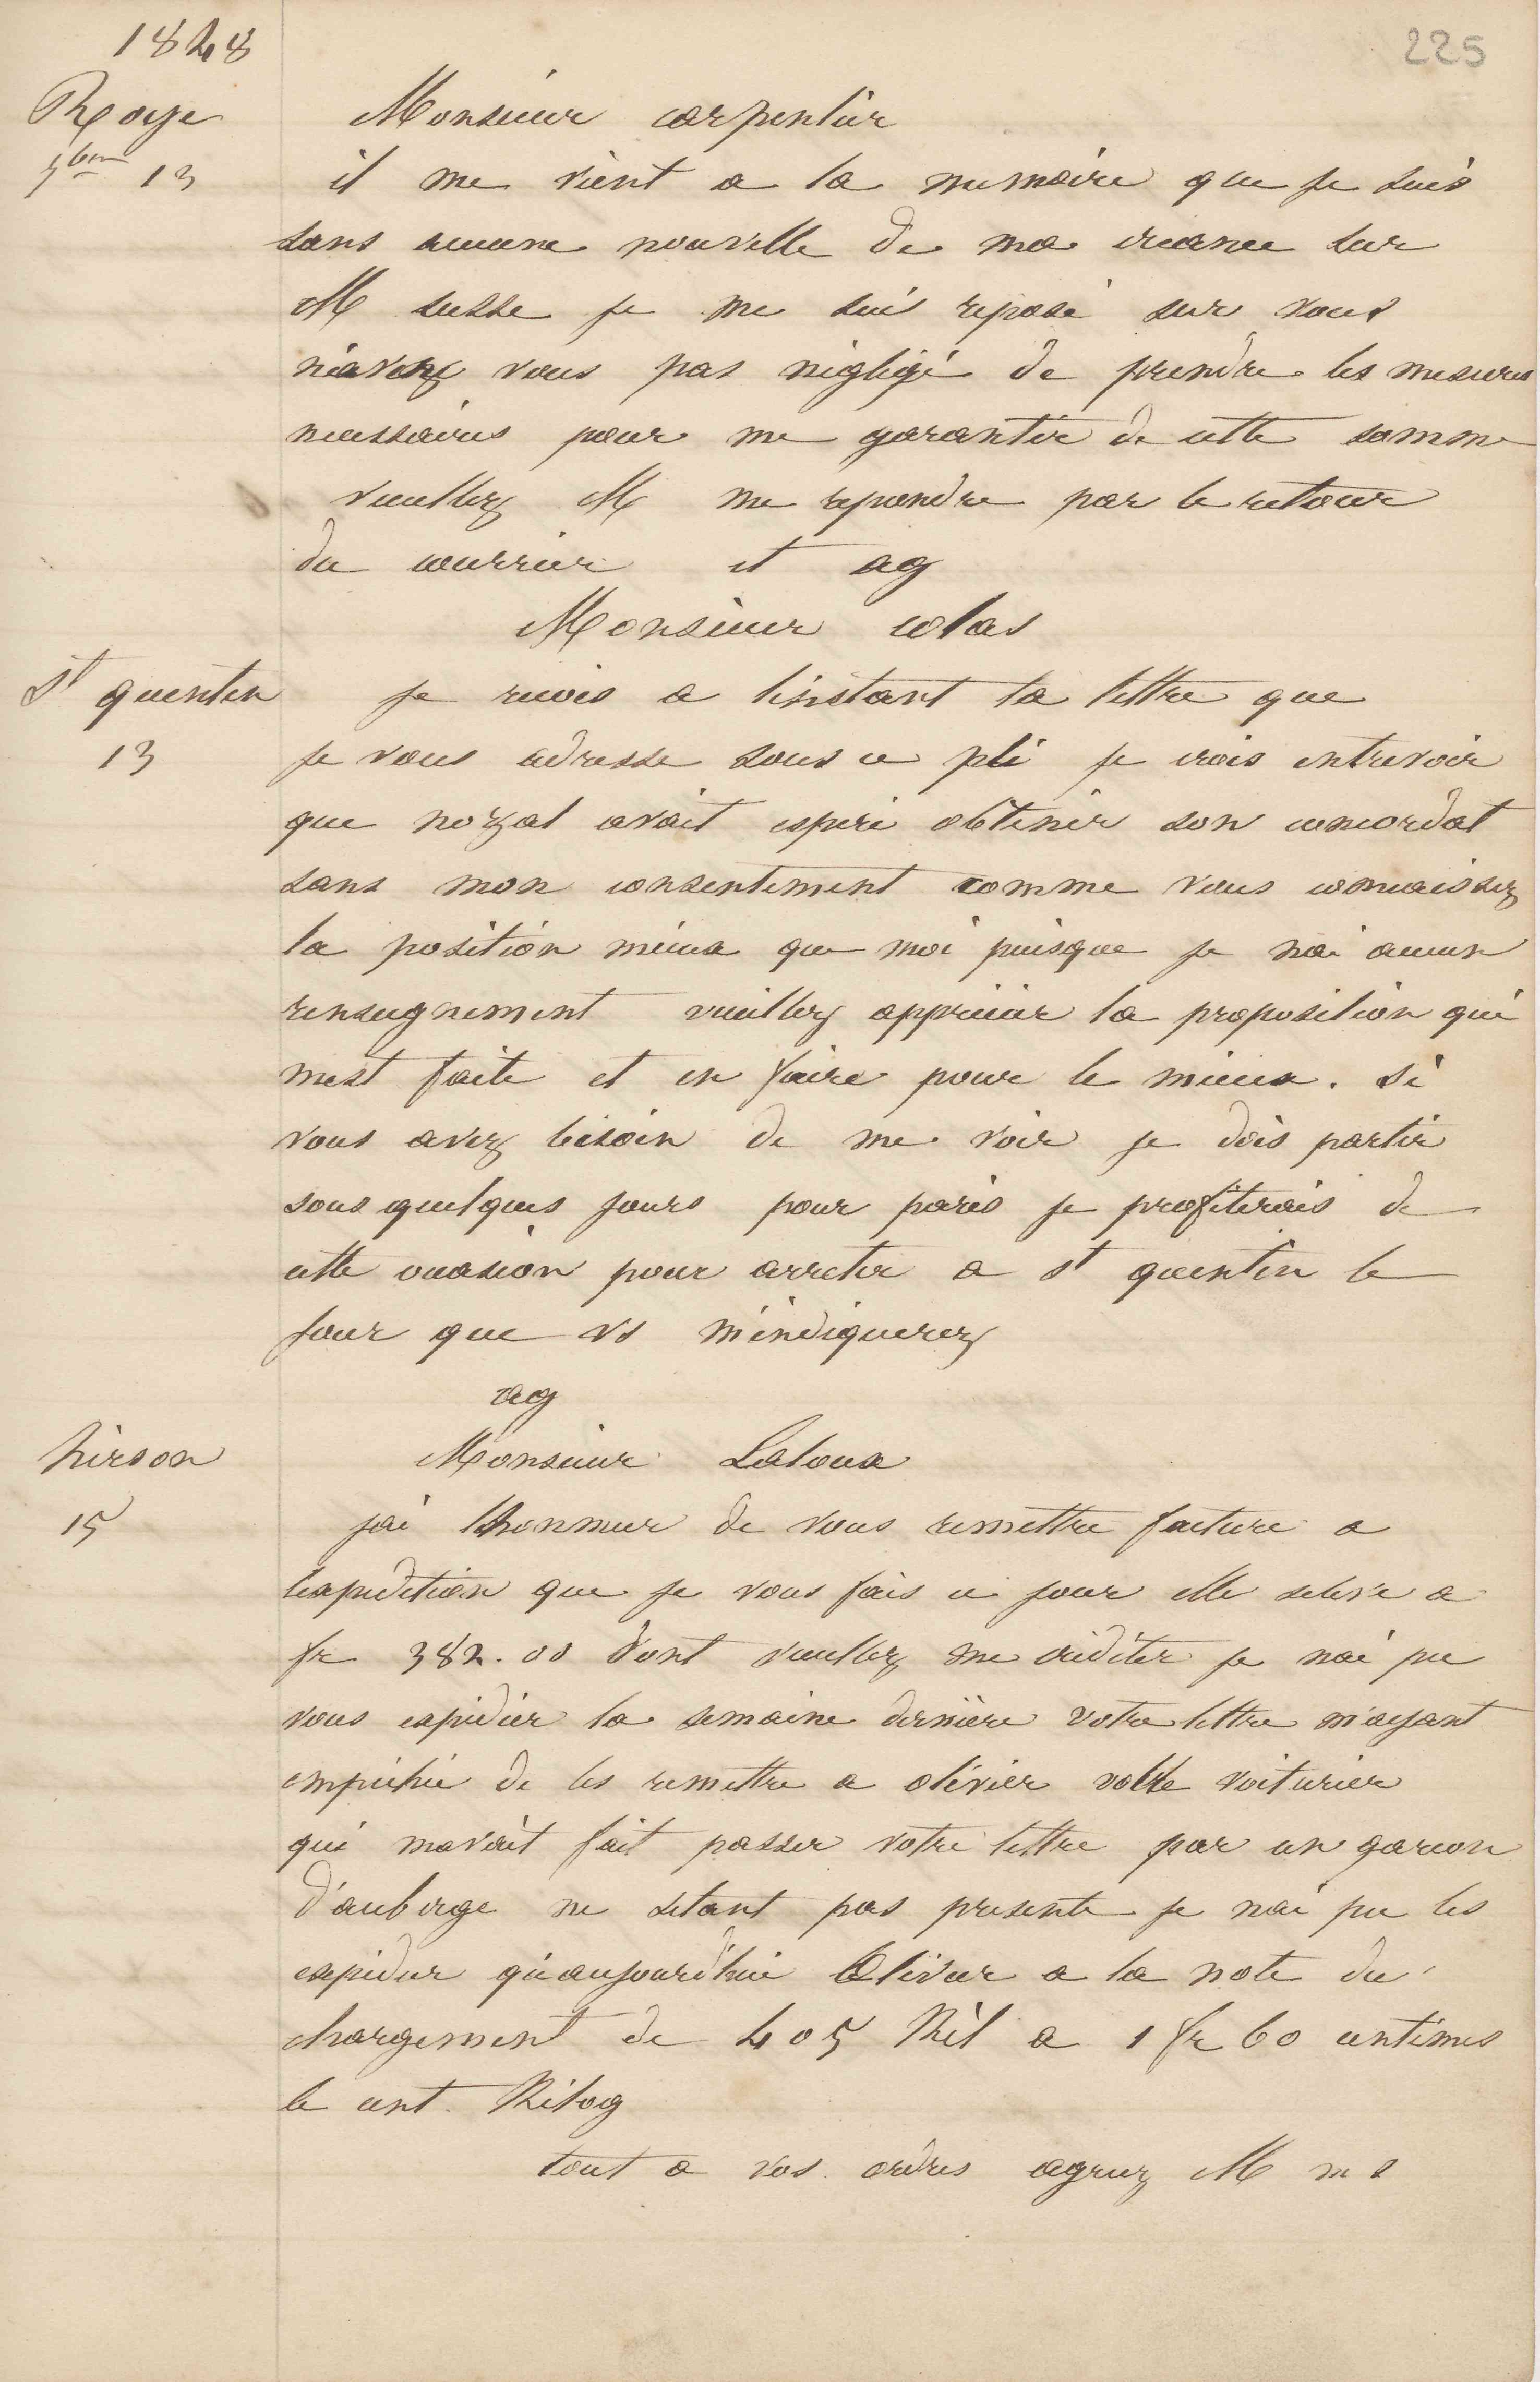 1848
225
Roye
Monsieur carpentier
9bre 13
il me vient a la memoire que je suis
sans aucune nouvelle de ma creance sur
M susse je me suis reposé sur vous
n'avez vous pas négligé de prendre les mesures
necessaires pour me garantir de cette somme
veuillez M me repondre par le retour
du courrier et ag
Monsieur colas
St quentin
je recois a l'instant la lettre que
13
je vous adresse sous ce pli je crois entrevoir
que nozal avait esperé obtenir son concordat
sans mon consentement comme vous connaissez
la position mieux que moi puisque je nai aucun
renseignement veuillez apprecier la proposition qui
mest faite et en faire pour le mieux. si
vous avez besoin de me voir je dois partir
sous quelques jours pour paris je profiterais de
cette occasion pour arreter a st quentin le
jour que vs m'indiquerez
ag
hirson
Monsieur Laloux
15
jai lhonneur de vous remettre facture a
lexpedition que je vous fais ce jour elle seleve a
fr 382.00 dont veuillez me créditer je nai pu
vous expedier la semaine dernière votre lettre m'ayant
empeché de les remettre a olivier votre voiturier
qui mavait fait passer votre lettre par un garcon
d'auberge ne setant pas presente je nai pu les
expedier qu'aujourd'hui Olivier a la note du
chargement de 405 Kil a 1 fr 60 centimes
le cent Kilog
tout a vos ordres agreez M m s